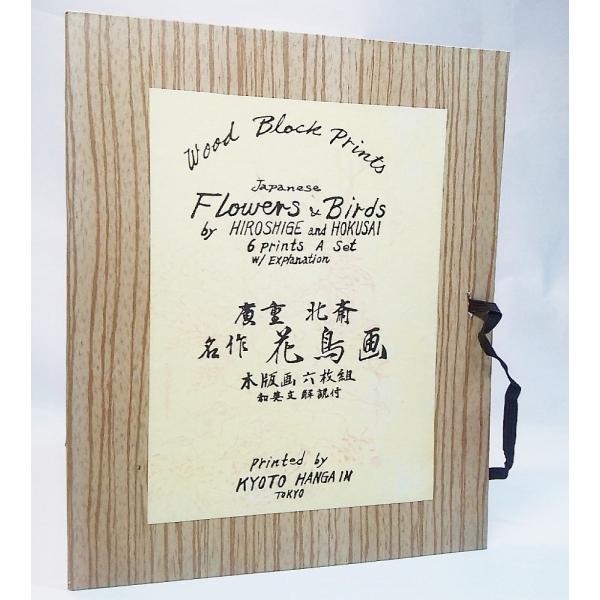 Wood Block Prints
Japanese
Flowers & Birds
by HIROSHIGE and HOKUSAI
6 prints A Set
W/ Explanation
廣重 北斎
名作 花鳥画
木版画六枚組
和英文解説付
printed by
KYOTO HANGA IN
TOKYO